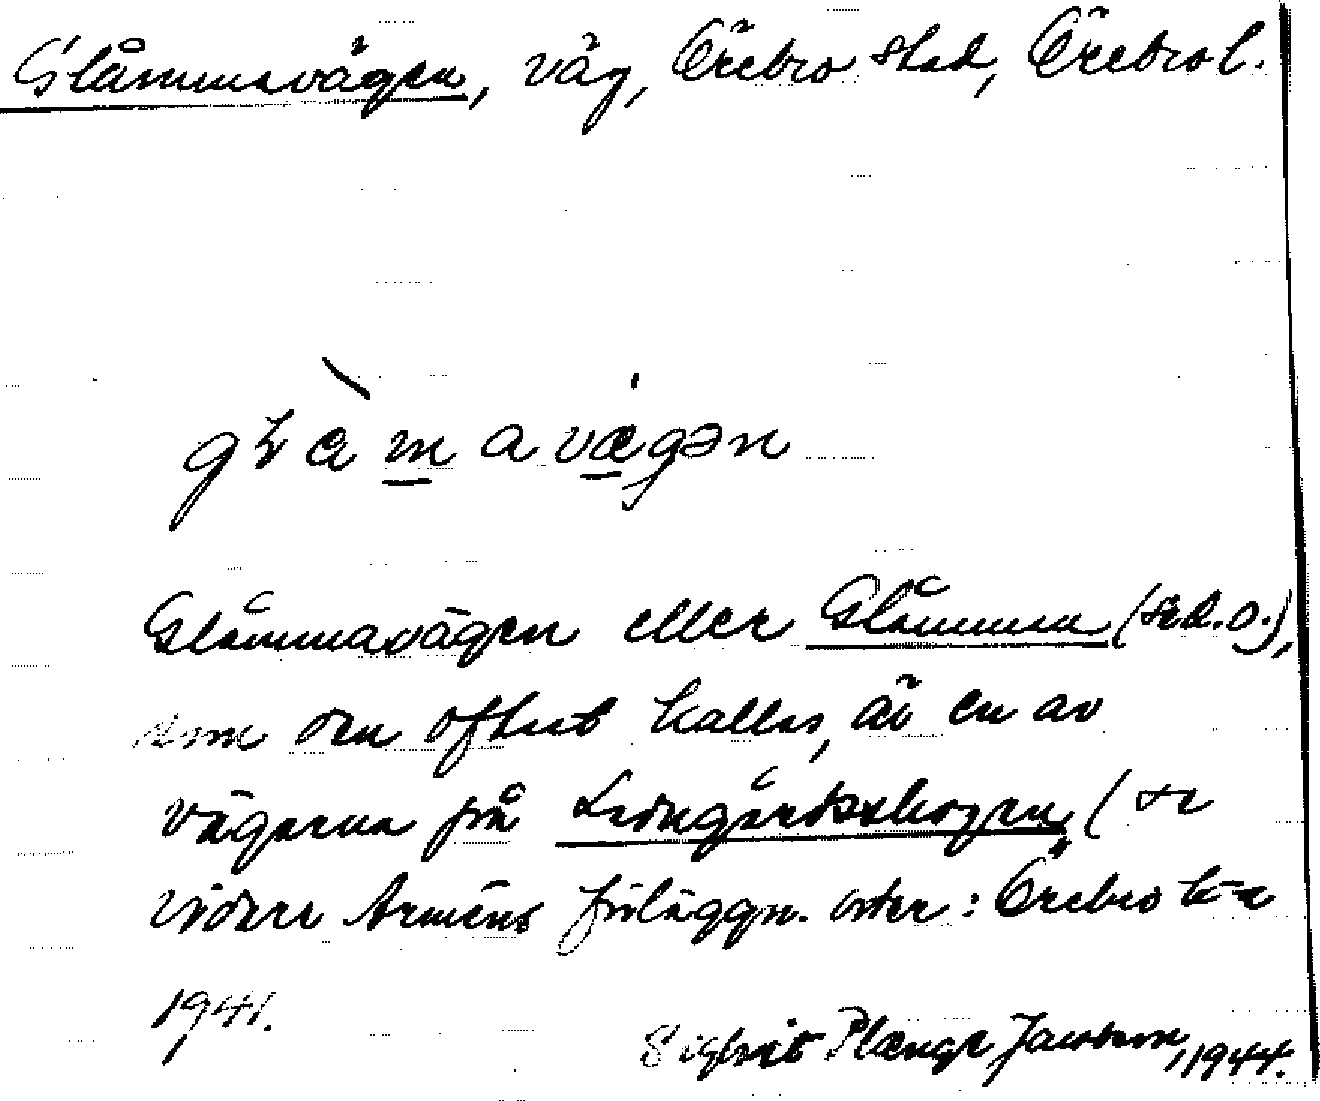 Glåmmavägen, väg, Örebro stad, Örebro l.
Glåmmavägen eller Glåmman (se d. o.),
som den oftast kallas, är en av
vägarna på Livregårdsskogen (se
vidare Arméns förläggn. orter: Örebro
1941.
Sigfrid Plænge Jacobson, 1944.